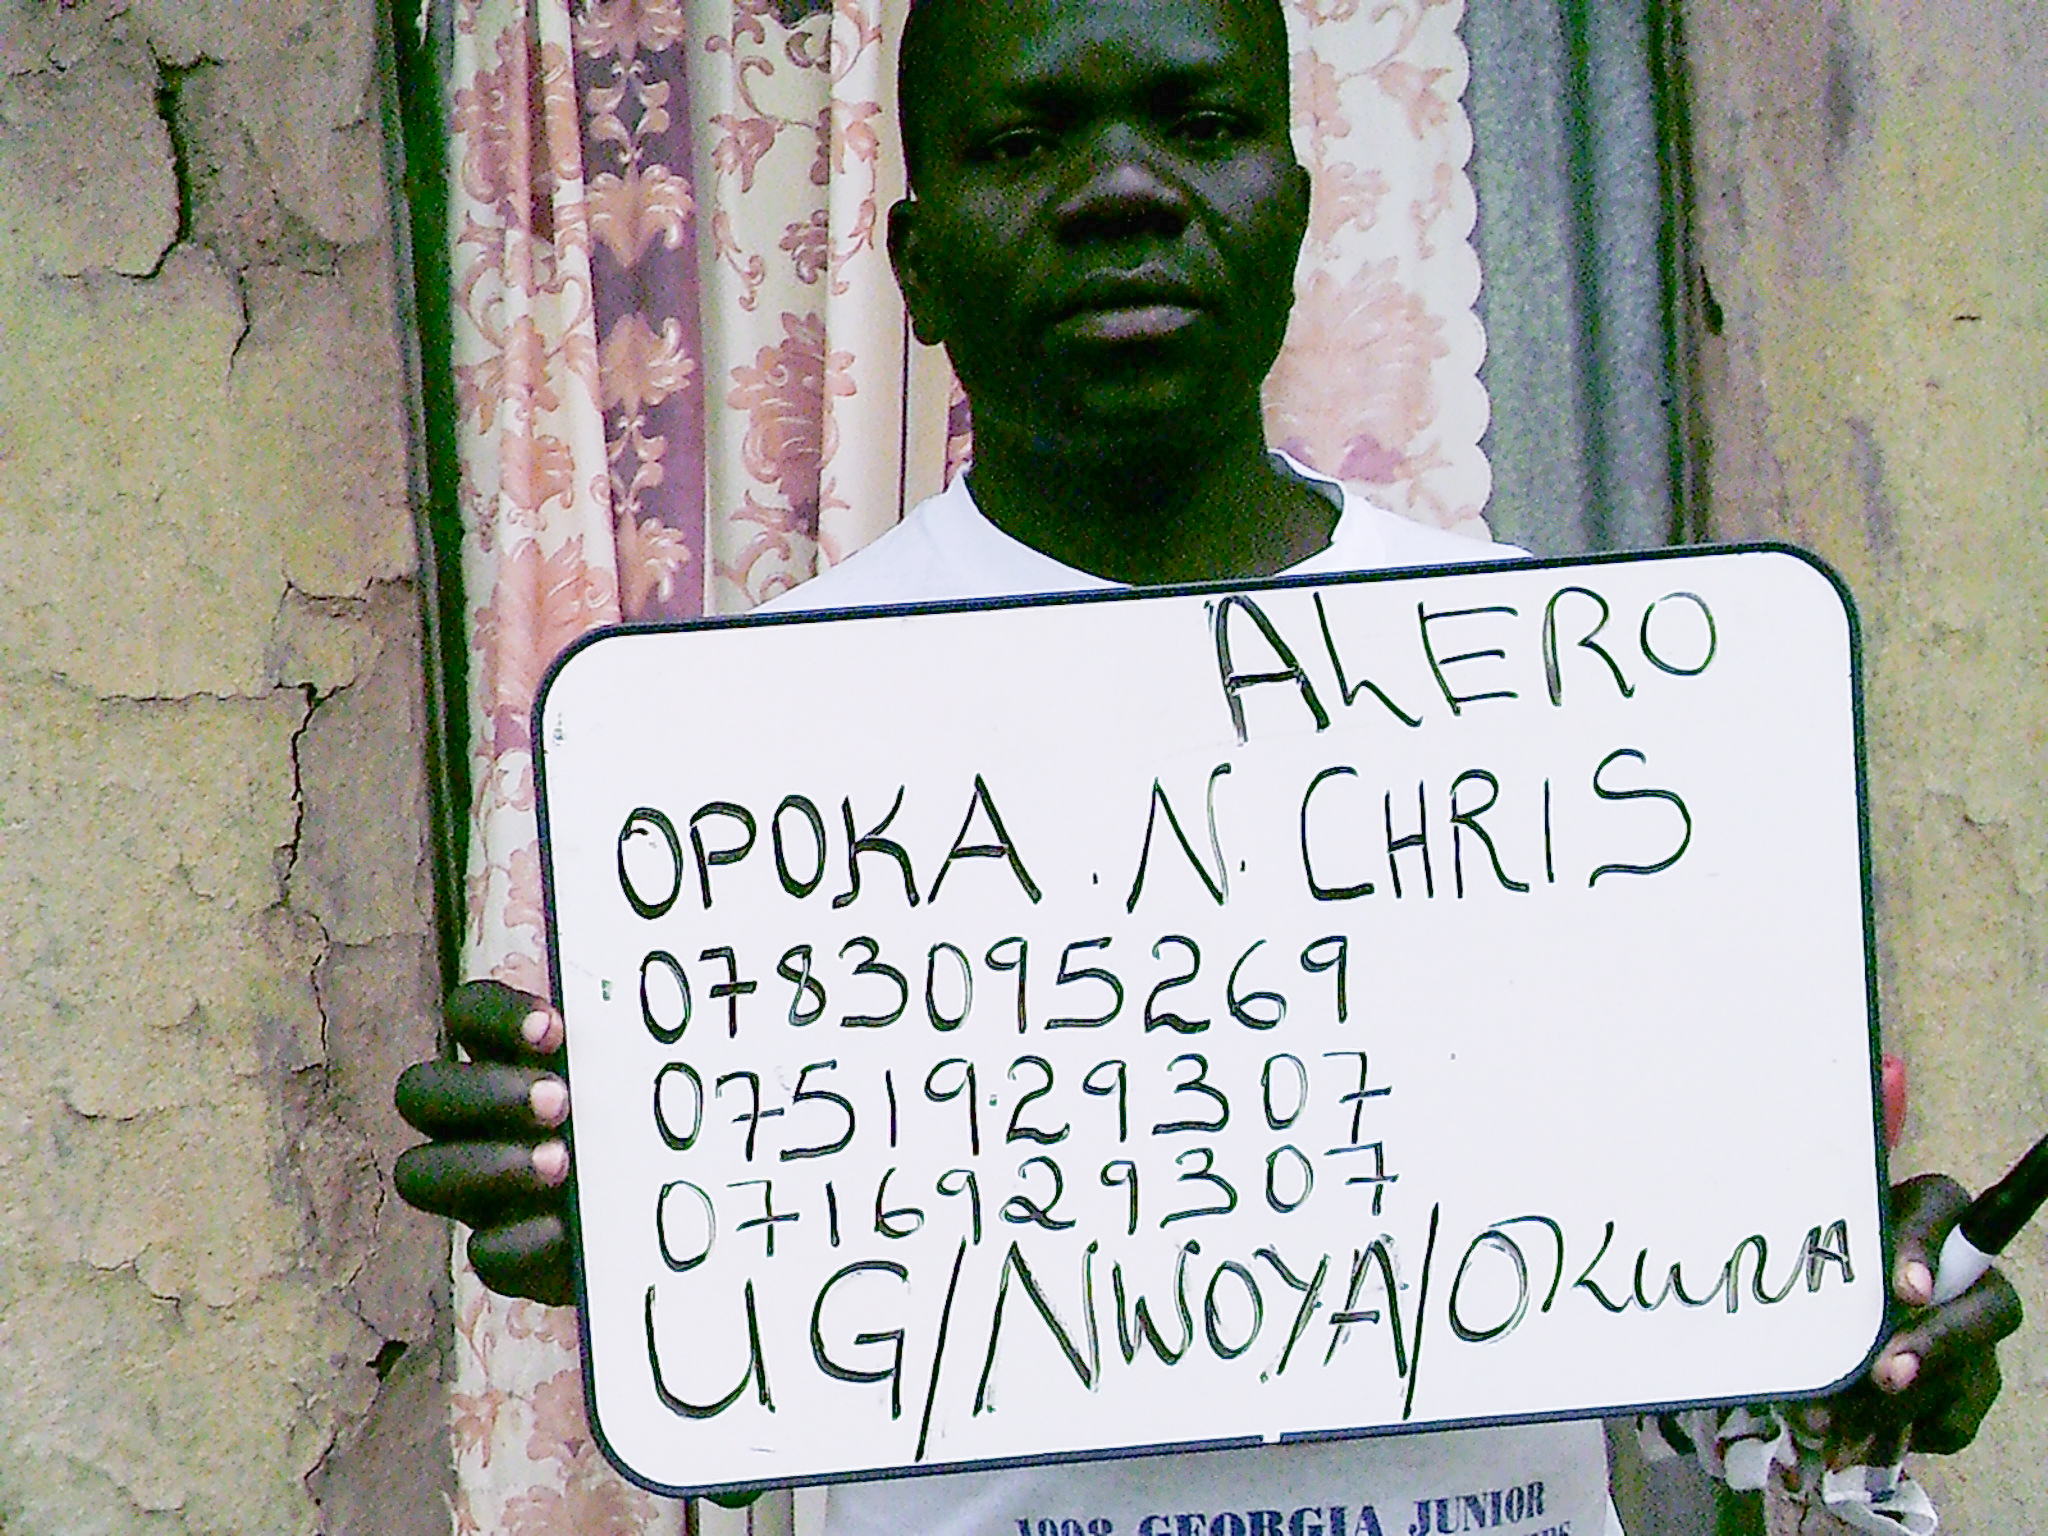 ALERO
OPOKA . N. CHRIS
0783095269
0751929307
0716929307
UG/NWOYA/OKURA
1998 GEORGIA JUNIOR